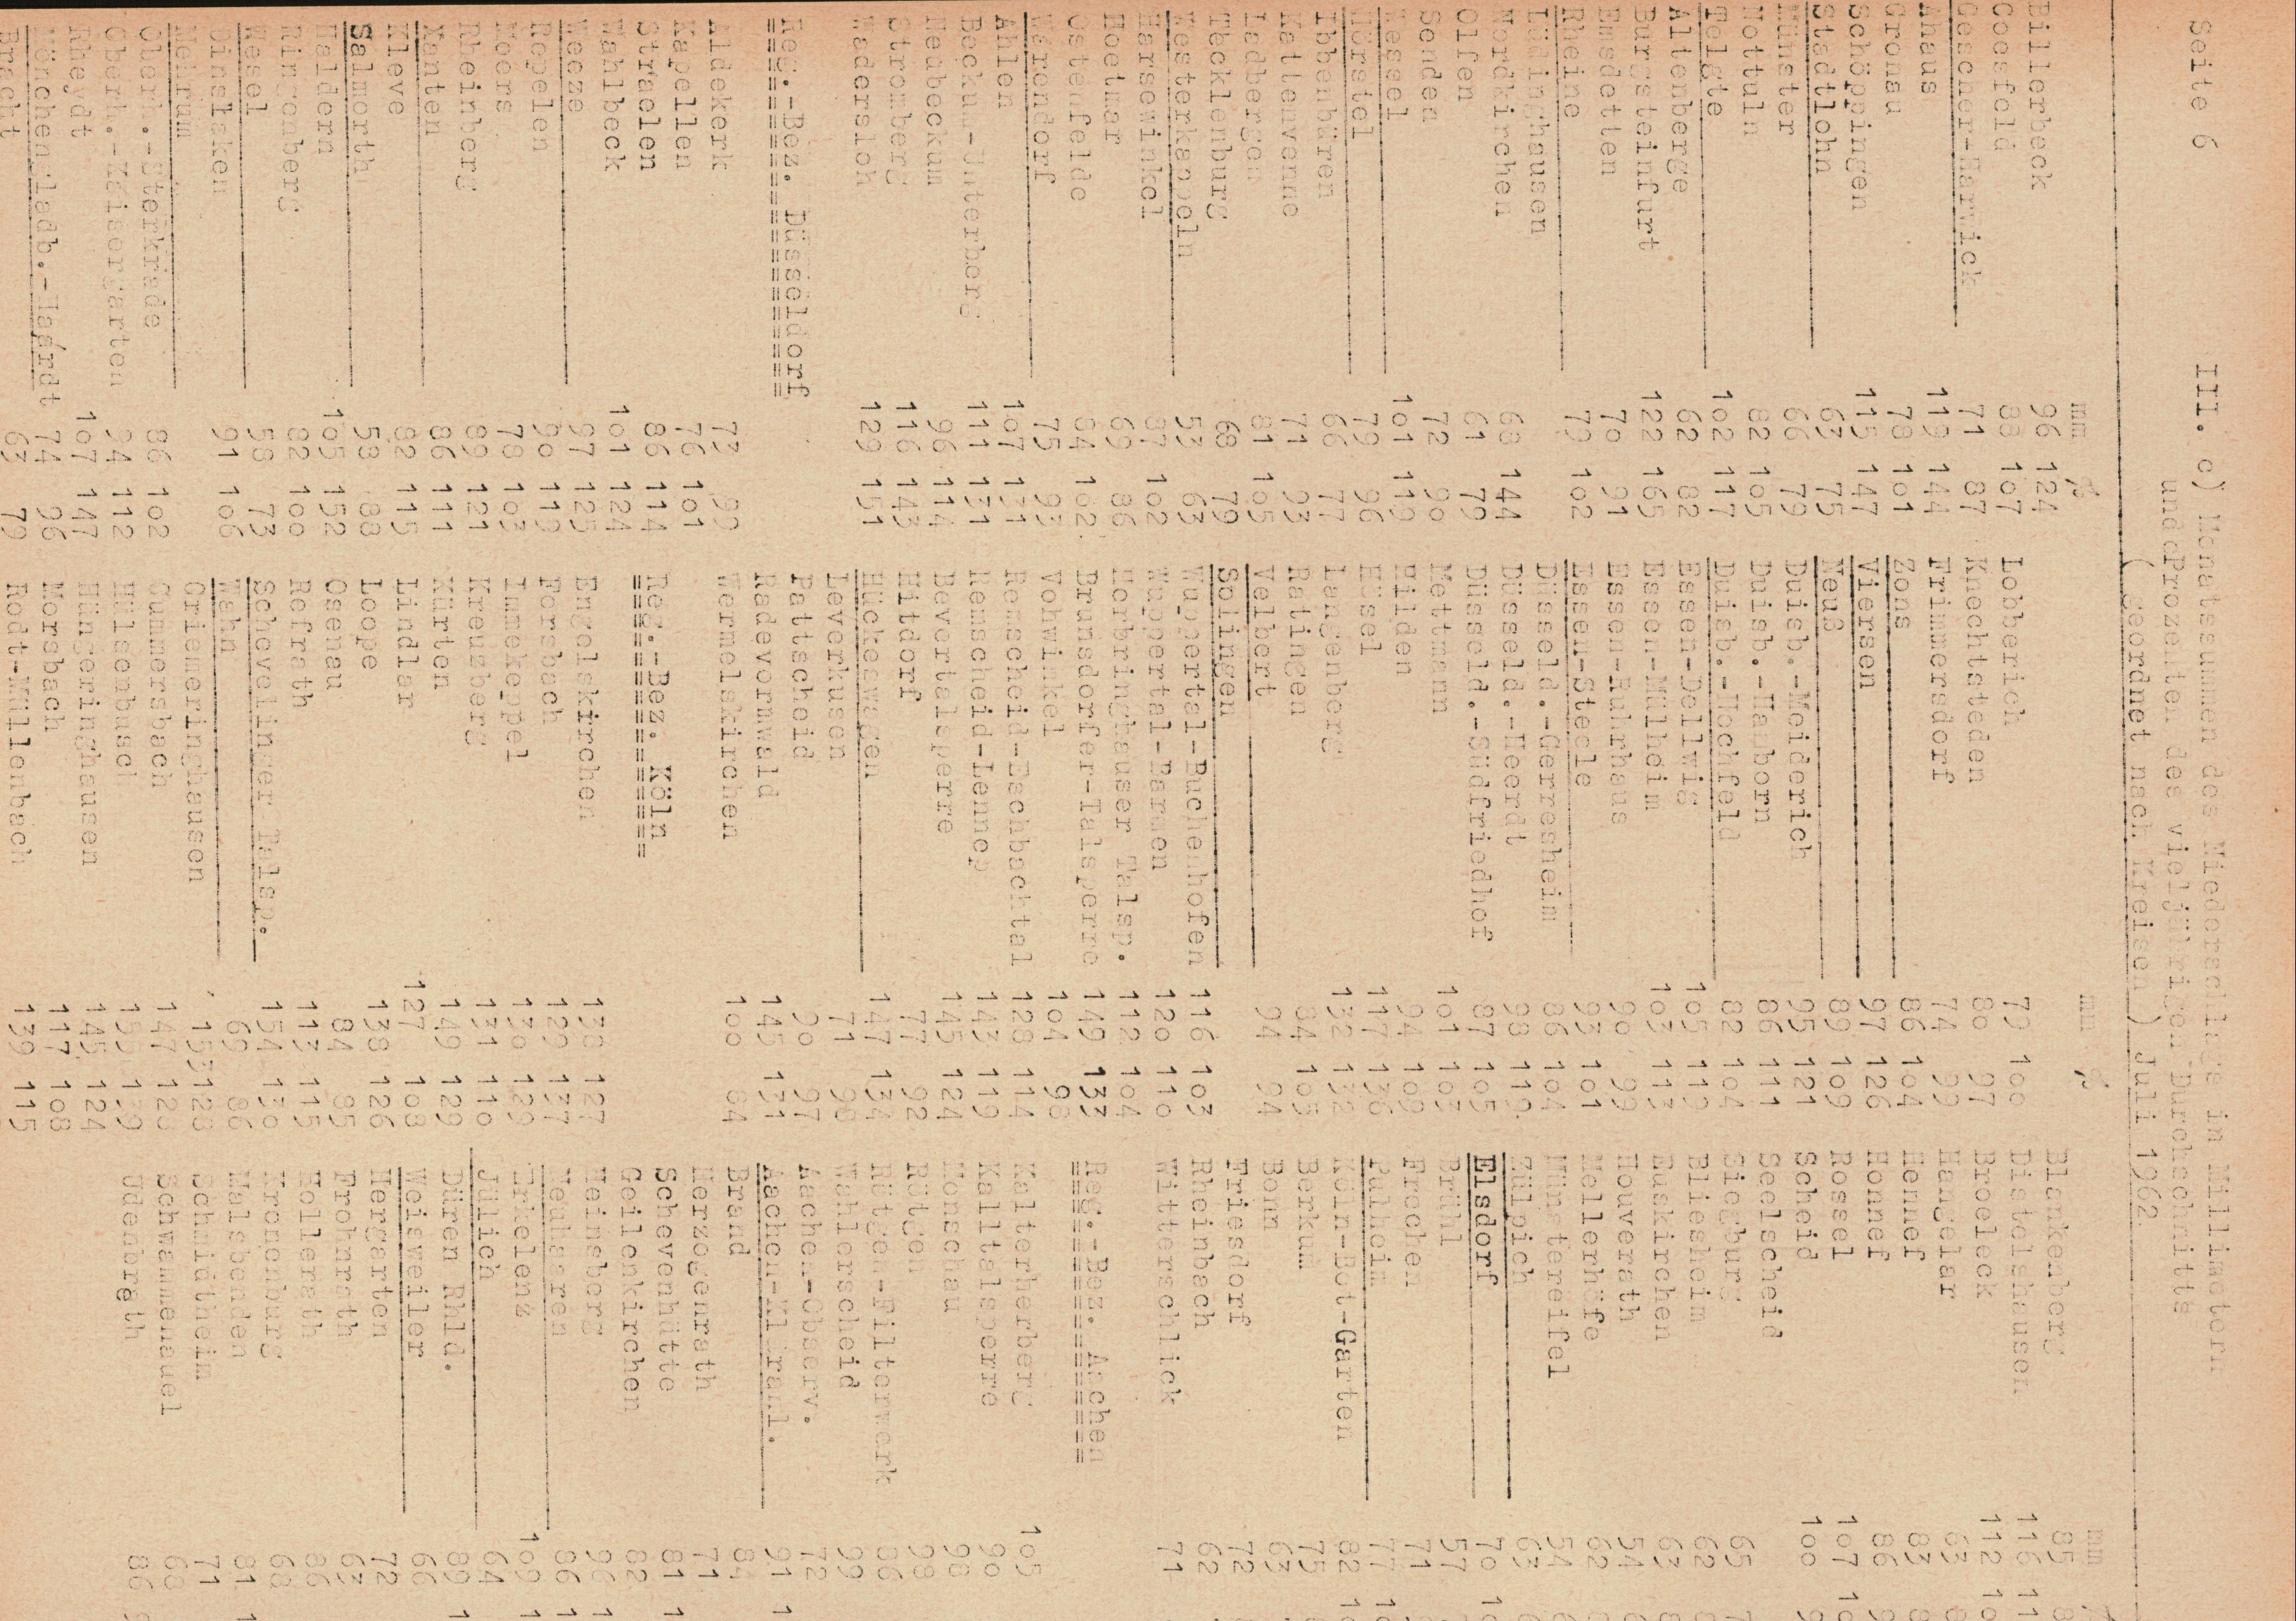 Seite 6
III. c) Monatssummen des Niederschlags in Millimetern
und Prozenten des vieljährigen Durchschnitts
( geordnet nach Kreisen ) Juli 1962
mm %
Billerbeck 96 124
Coesfeld 88 107
Gescher-Harwick 71 87
Ahaus 119 144
Gronau 78 101
Schöppingen 115 147
Stadtlohn 63 75
Münster 66 79
Nottuln 82 105
Telgte 102 117
Altenberge 62 82
Burgsteinfurt 122 165
Emsdetten 70 91
Rheine 79 102
Lüdinghausen
Nordkirchen 68 144
Olfen 61 79
Senden 72 90
Wessel 101 119
Hörstel 79 96
Ibbenbüren 66 77
Kattenvenne 71 93
Ladbergen 81 105
Tecklenburg 68 79
Westerkappeln 53 63
Harsewinkel 87 102
Hoetmar 69 86
Ostenfelde 84 102
Warendorf 75 93
Ahlen 107 131
Beckum-Unterberg 111 131
Neubeckum 96 114
Stromberg 116 143
Wadersloh 129 151
Reg.-Bez. Düsseldorf
====================
Aldekerk 73 99
Kapellen 76 101
Straelen 86 114
Wahlbeck 101 124
Weeze 97 125
Repelen 90 119
Moers 78 103
Rheinberg 89 121
Xanten 86 111
Kleve 82 115
Salmorth 58 88
Haldern 105 152
Ringenberg 82 100
Wesel 58 73
Dinslaken 91 106
Mehrum
Oberh.-Sterkrade 86 102
Oberh.-Kaisergarten 94 112
Rheydt 107 147
Mönchengladb.-Haardt 74 96
Bracht 63 79
mm %
Lobberich 79 100
Knechtsteden 80 97
Frimmersdorf 74 99
Zons 86 104
Viersen 97 126
Neuß 89 109
Duisb.-Meiderich 95 121
Duisb.-Hamborn 86 111
Duisb.-Hochfeld 82 104
Essen-Dellwig 105 119
Essen-Mülheim 103 113
Essen-Ruhrhaus 90 99
Essen-Steele 93 101
Düsseld.-Gerresheim 86 104
Düsseld.-Heerdt 98 119
Düsseld.-Südfriedhof 87 105
Mettmann 101 103
Hilden 94 109
Hösel 117 136
Langenberg 132 132
Ratingen 84 105
Velbert 94 94
Solingen
Wuppertal-Buchenhofen 116 103
Wuppertal-Barmen 120 110
Herbringhauser Talsp. 112 104
Brunsdorfer-Talsperre 149 133
Vohwinkel 104 98
Remscheid-Eschbachtal 128 114
Remscheid-Lennep 143 119
Bevertalsperre 145 124
Hitdorf 77 92
Hückeswagen 147 134
Leverkusen 71 98
Pattscheid 90 97
Radevormwald 145 131
Wermelskirchen 100 84
Reg.-Bez. Köln
==============
Engelskirchen 138 127
Forsbach 129 137
Immekeppel 130 129
Kreuzberg 131 110
Kürten 149 129
Lindlar 127 108
Loope 138 126
Osenau 84 85
Refrath 113 115
Schevelinger Talsp. 154 130
Wahn 69 86
Griemeringhausen 153 128
Gummersbach 147 128
Hülsenbusch 159 139
Hüngeringhausen 145 124
Morsbach 117 108
Rodt-Müllenbach 139 115
mm
Blankenberg 85
Distelshausen 116
Broeleck 112
Hangelar 63
Hennef 83
Honnef 86
Rossel 107
Scheid 100
Seelscheid
Siegburg 65
Bliesheim 62
Euskirchen 63
Houverath 54
Mellerhöfe 62
Münstereifel 54
Zülpich 63
Elsdorf 70
Brühl 57
Frechen 71
Pulheim 77
Köln-Bot-Garten 82
Berkum 75
Bonn 63
Friesdorf 72
Rheinbach 62
Witterschlick 71
Reg.-Bez. Aachen
================
Kalterherberg 105
Kalltalsperre 90
Monschau 98
Rötgen 98
Rötgen-Filterwerk 86
Wahlerscheid 99
Aachen-Observ. 72
Aachen-Kläranl. 91
Brand 84
Herzogenrath 71
Schevenhütte 81
Geilenkirchen 82
Heinsberg 96
Neuhaaren 86
Erkelenz 109
Jülich 64
Düren Rhld. 89
Weisweiler 66
Hergarten 72
Frohnrath 63
Hollerath 86
Kronenburg 68
Malsbenden 81
Schmidtheim 71
Schwammenauel 68
Udenbreth 86